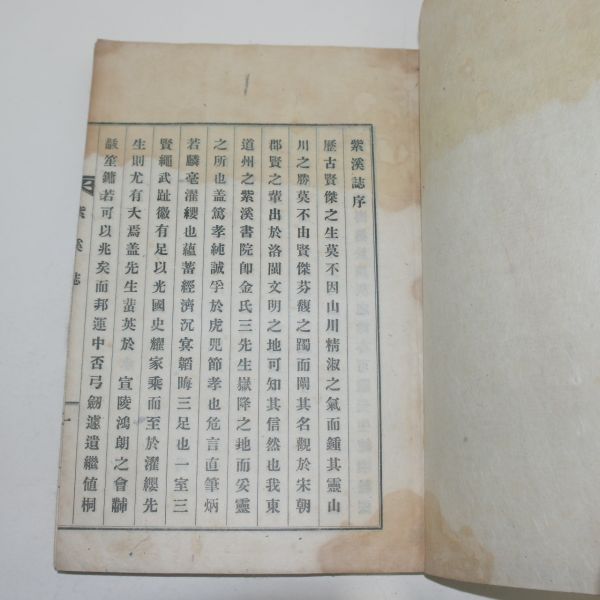 紫溪誌序
歷古賢傑之生莫不因山川精淑之氣而鍾其靈山
川之勝莫不由賢傑芬馥之躅而闡其名觀於宋朝
郡賢之輩出於洛閩文明之地可知其信然也我東
道州之紫溪書院卽金氏三先生嶽降之地而妥靈
之所也盖篤孝純誠孚於虎兕節孝也危言直筆炳
若麟毫濯纓也蘊蓄經濟沉冥韜晦三足也一室三
賢繩武趾徽有足以光國史耀家乘而至於濯纓先
生則尤有大焉盖先生蜚英於 宣陵鴻朗之會黼
黻笙鏞若可以兆矣而邦運中否弓劒遽遺繼値桐
紫溪誌